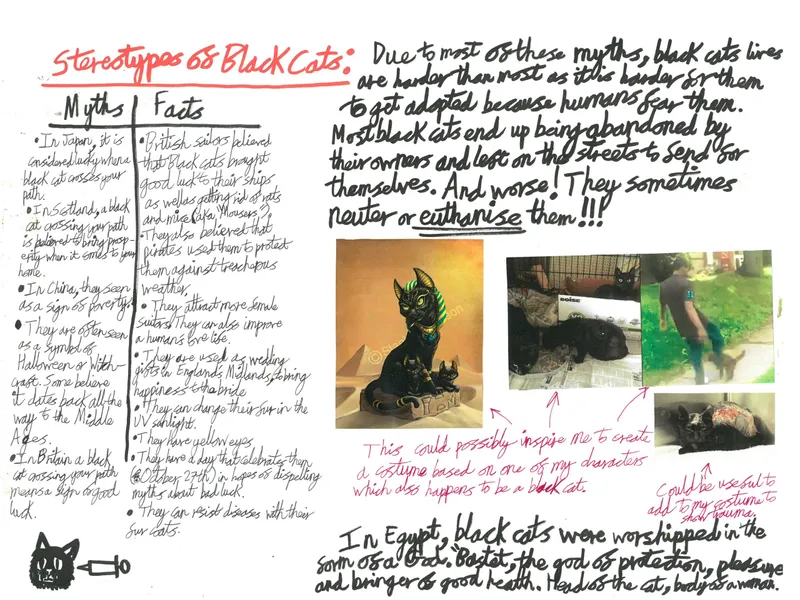 Stereotypes of Black Cats:
Myths
• In Japan, it is
considered lucky when a
black cat crosses your
path.
• In Scotland, a black
cat crossing your path
is believed to bring prosp-
erity when it comes to your
home.
• In China, they seen
as a sign of poverty.
• They are often seen
as a symbol of
Halloween or Witch-
craft. Some believe
it dates back all the
way to the Middle
Ages.
• In Britain a black
cat crossing your path
means a sign of good
luck.
Facts
• British sailors believed
that Black cats brought
good luck to their ships
as well as getting rid of rats
and mice (aka, 'Mousers').
They also believed that
pirates used them to protect
them against treacherous
weather.
• They attract more female
suitors. They can also improve
a humans love life.
• They are used as wedding
gifts in Englands Midlands, to bring
happiness to the bride
• They can change their fur in the
UV sunlight.
• They have yellow eyes
• They have a day that celebrates them
(October 27th) in hopes of dispelling
myths about bad luck.
• They can resist diseases with their
fur coats.
Due to most of these myths, black cats lives
are harder than most as it is harder for them
to get adopted because humans fear them.
Most black cats end up being abandoned by
their owners and left on the streets to fend for
themselves. And worse! They sometimes
neuter or euthanise them!!!
BOISE
This could possibly inspire me to create
a costume based on one of my characters
which also happens to be a black cat.
Could be useful to
add to my costume to
show trauma.
In Egypt, black cats were worshipped in the
form of a God. "Bastet, the god of protection, pleasure
and bringer of good health. Head of the cat, body of a woman.